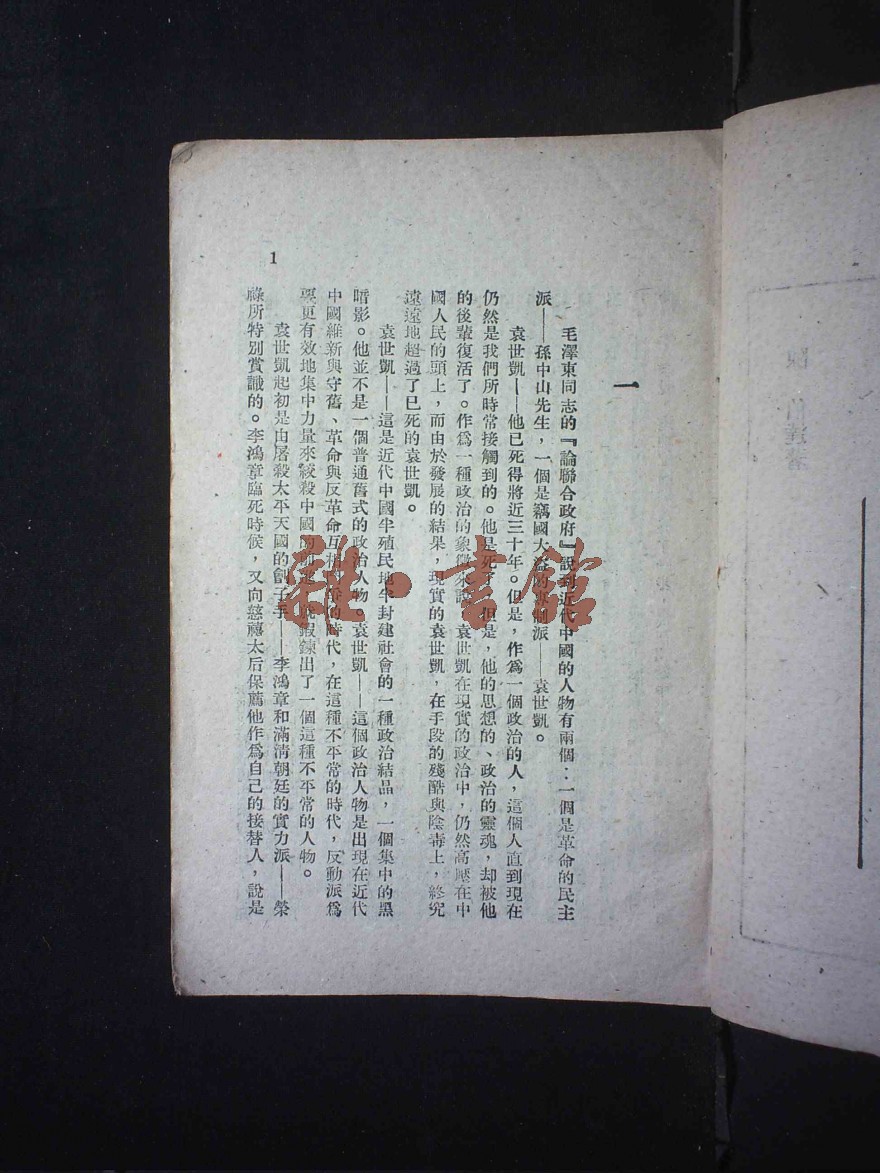 一
毛澤東同志的『論聯合政府』說到近代中國的人物有兩個：一個是革命的民主
派——孫中山先生，一個是竊國大盜的專制派——袁世凱。
袁世凱——他已死得將近三十年。但是，作爲一個政治的人，這個人直到現在
仍然是我們所時常接觸到的。他是死了，但是，他的思想的、政治的靈魂，却被他
的後輩復活了。作爲一種政治的象徵來說，袁世凱在現實的政治中，仍然高壓在中
國人民的頭上，而由於發展的結果，現實的袁世凱，在手段的殘酷與陰毒上，終究
遠遠地超過了已死的袁世凱。
袁世凱——這是近代中國半殖民地半封建社會的一種政治結晶，一個集中的黑
暗影。他並不是一個普通舊式的政治人物。袁世凱——這個政治人物是出現在近代
中國維新與守舊、革命與反革命互相的時代，在這種不平常的時代，反動派爲
要更有效地集中力量來絞殺中國的鍛鍊出了一個這種不平常的人物。
袁世凱起初是由屠殺太平天國的劊子手——李鴻章和滿清朝廷的實力派——榮
祿所特別賞識的。李鴻章臨死時候，又向慈禧太后保薦他作爲自己的接替人，說是
1
陳伯達著
雜·書館